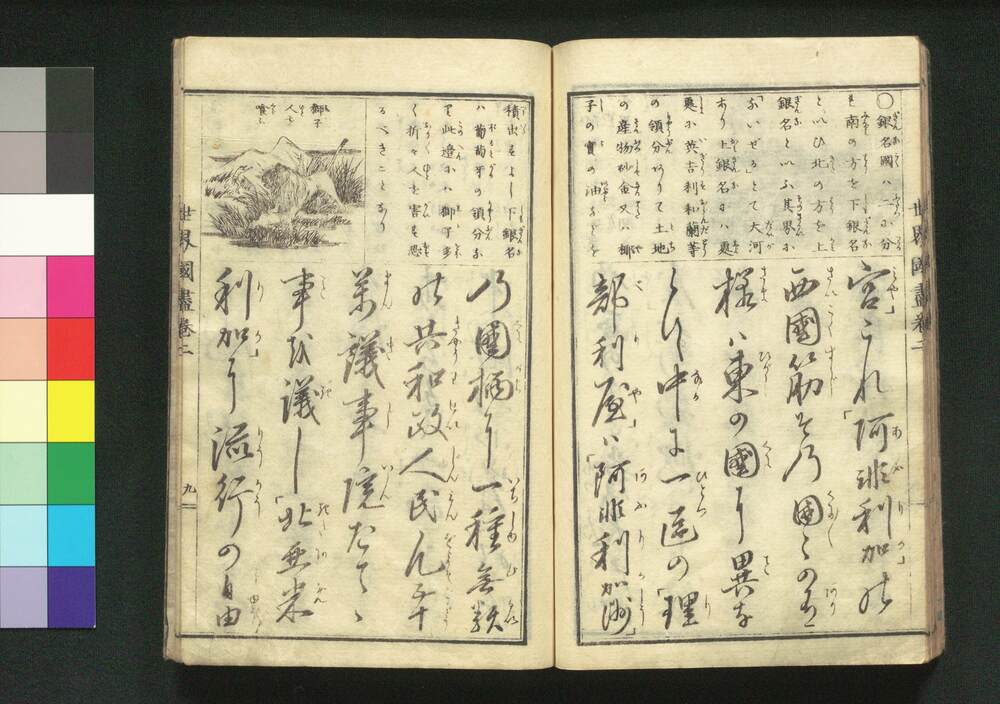 〇銀名國ハ二ツに分
け南の方を下銀名
といひ北の方を上
銀名といふ其界に
「ないぜる」とて大河
あり上銀名にハ更
更に英吉利和蘭等
の領分ありて土地
の産物砂金又ハ椰
子の實の油などを
宮これ「阿非利加」の
西國筋その國々の有
様ハ東の國に異な
らず中に一區の「理
部利屋」ハ「阿非利加洲」
世界國盡卷二
積出すよし下銀名
ハ葡萄牙の領分に
て此邊にハ獅子多
く折々人を害す恐
るべきことなり
獅子
人を
喰ふ
乃國柄に一種無類
の共和政人民凡五十
萬議事院たてゝ
事を議し「北亞米
利加」に流行の自由
世界國盡卷二
九